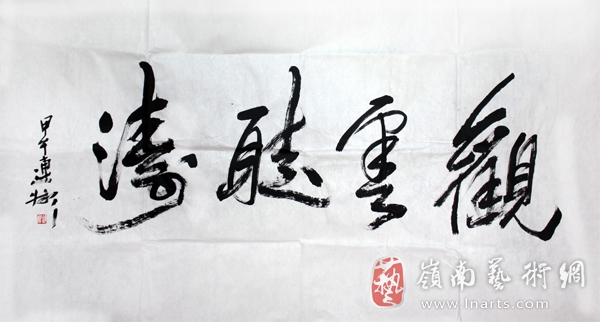 觀雲聽濤
甲午
嶺南藝術網
www.lnarts.com